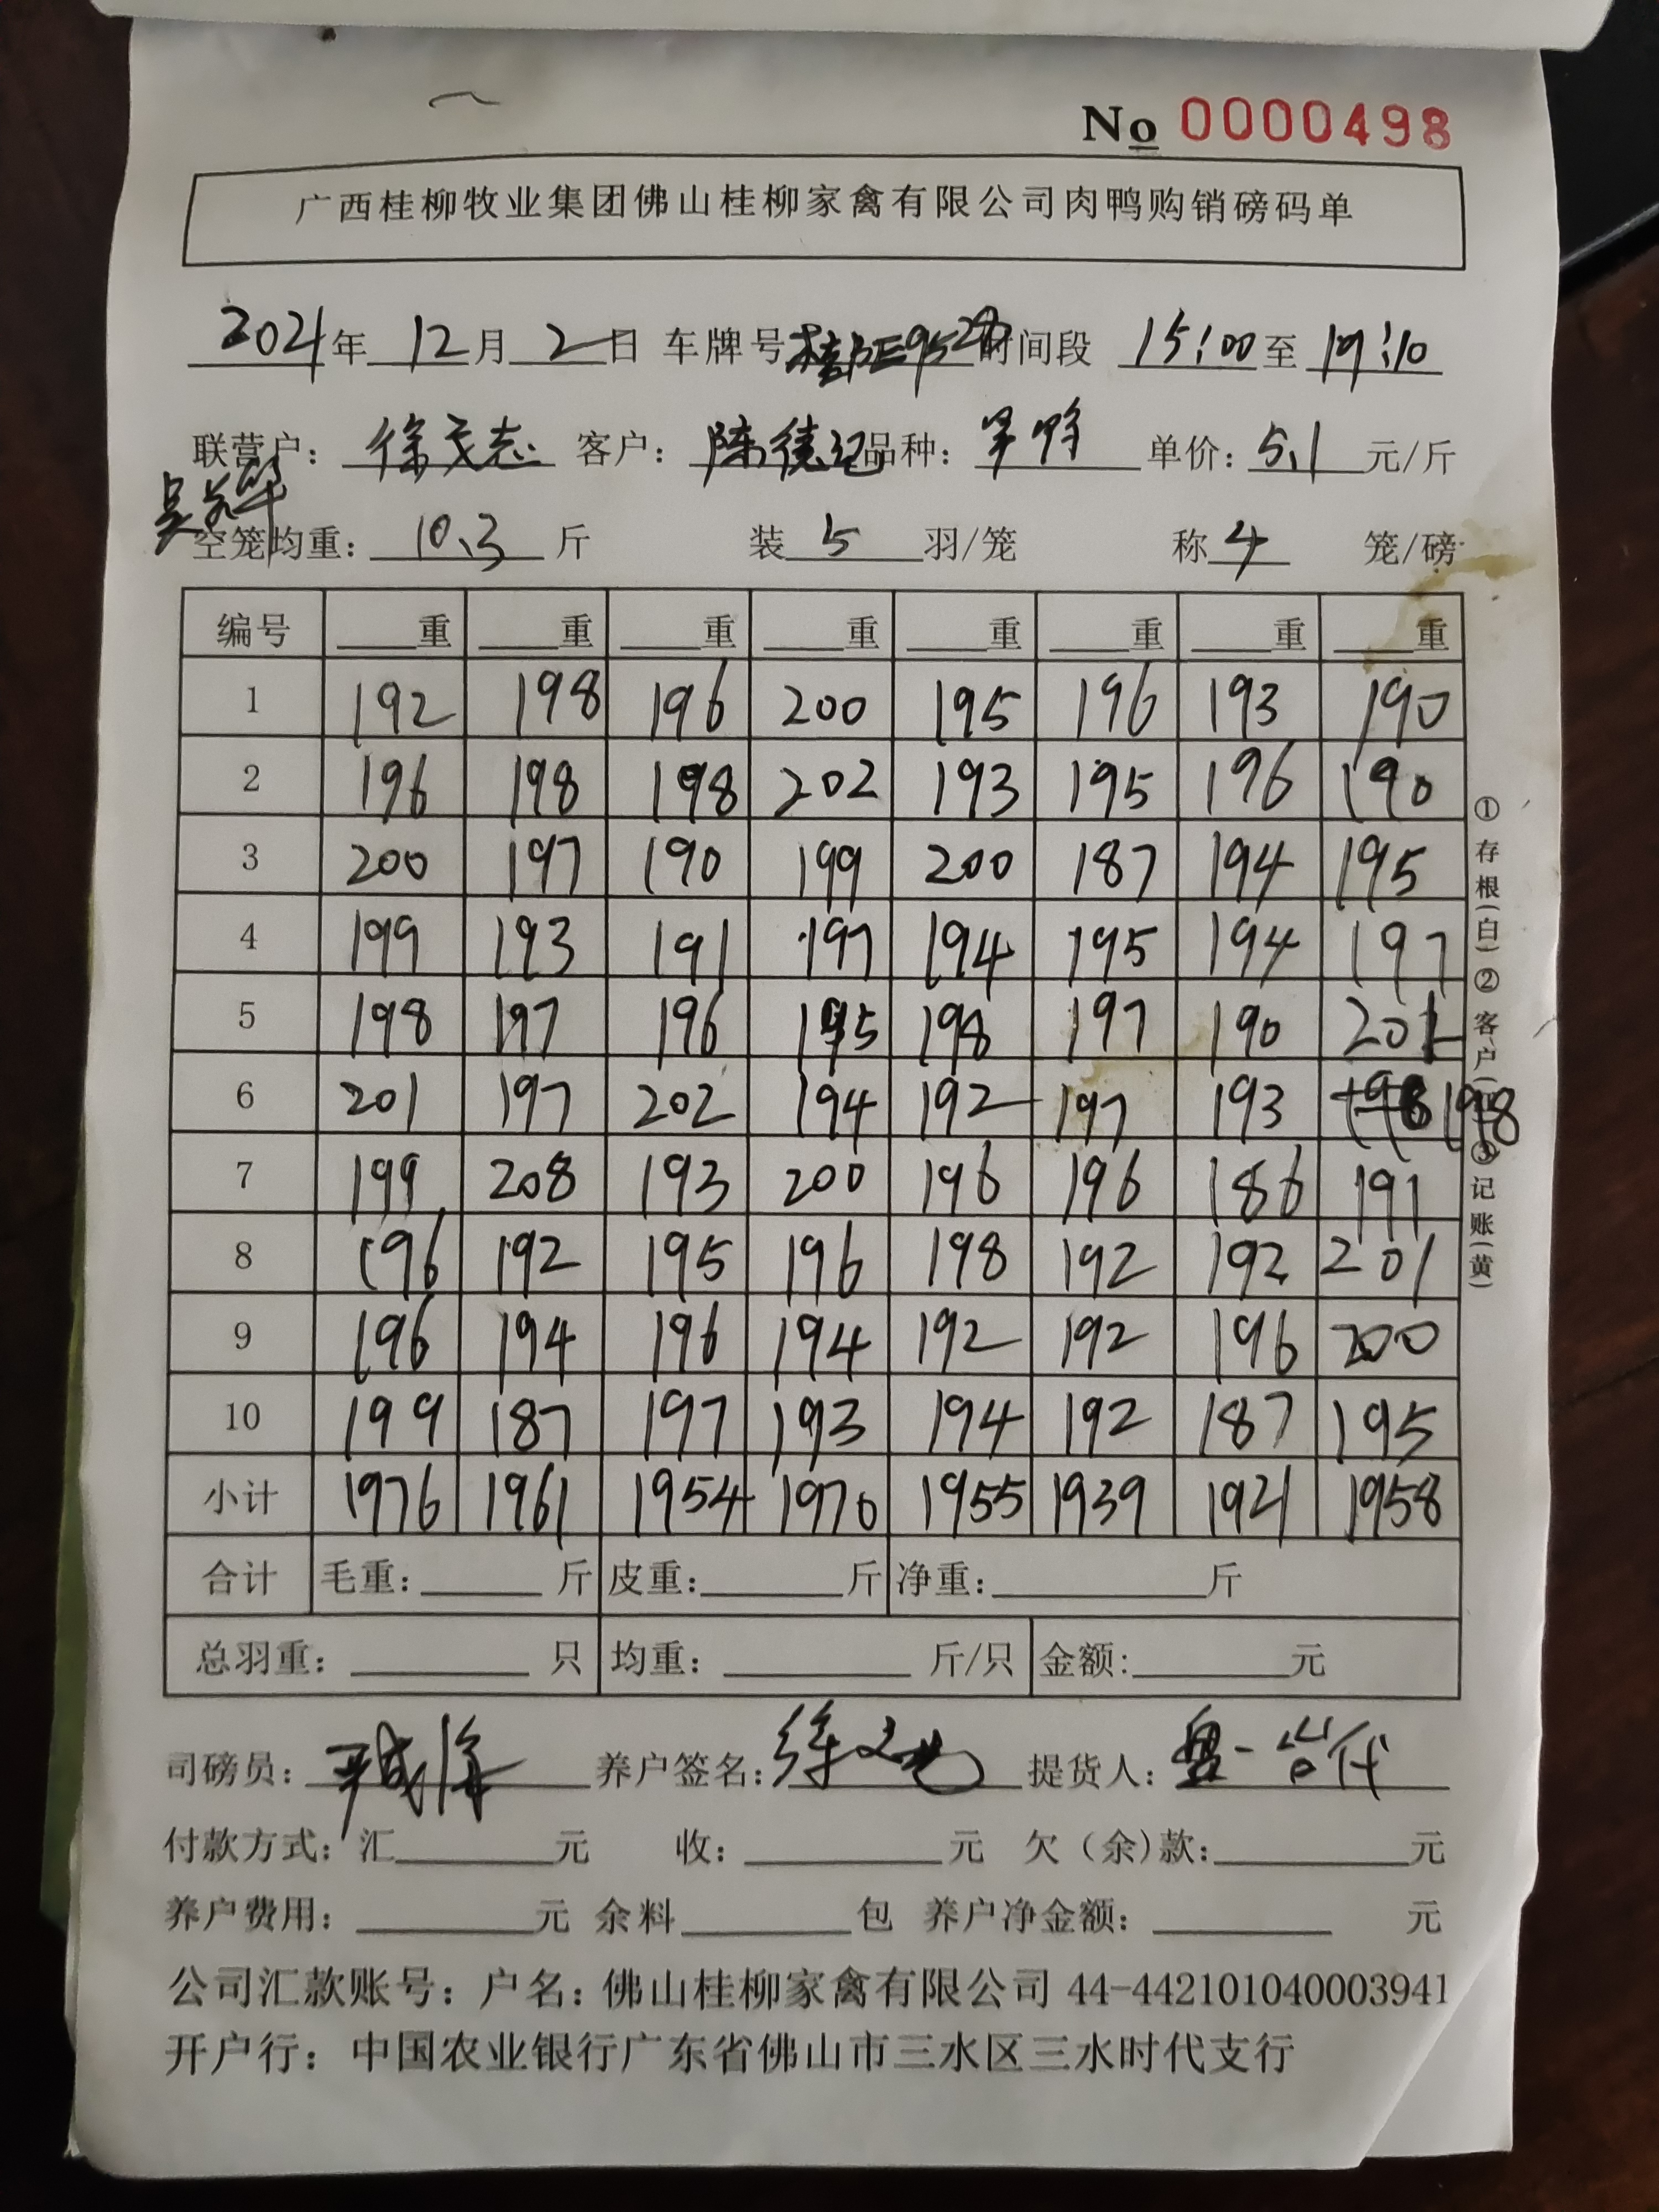 No 0000498
广西桂柳牧业集团佛山桂柳家禽有限公司肉鸭购销磅码单
2021年 12月 2日 车牌号 时间段 15:00至 19:10
联营户: 徐文志 客户: 陈德记 品种: 单价: 5.1元/斤
空笼均重: 10.3 斤 装 5 羽/笼 称 4 笼/磅
编号 重 重 重 重 重 重 重 重
1 192 198 196 200 195 196 193 190
2 196 198 198 202 193 195 196 190
3 200 197 190 199 200 187 194 195
4 199 193 191 197 194 195 194 197
5 198 197 196 195 198 197 190 201
6 201 197 202 194 192 197 193 198
7 199 208 193 200 196 196 186 191
8 196 192 195 196 198 192 192 201
9 196 194 196 194 192 192 196 200
10 199 187 197 193 194 192 187 195
小计 1976 1961 1954 1970 1955 1939 1921 1958
合计 毛重: 斤 皮重: 斤 净重: 斤
总羽重: 只 均重: 斤/只 金额: 元
司磅员: 养户签名: 提货人:
付款方式: 汇 元 收: 元 欠(余)款: 元
养户费用: 元 余料 包 养户净金额: 元
公司汇款账号: 户名: 佛山桂柳家禽有限公司 44-442101040003941
开户行: 中国农业银行广东省佛山市三水区三水时代支行
①存根(白)②客户( ③记账(黄)